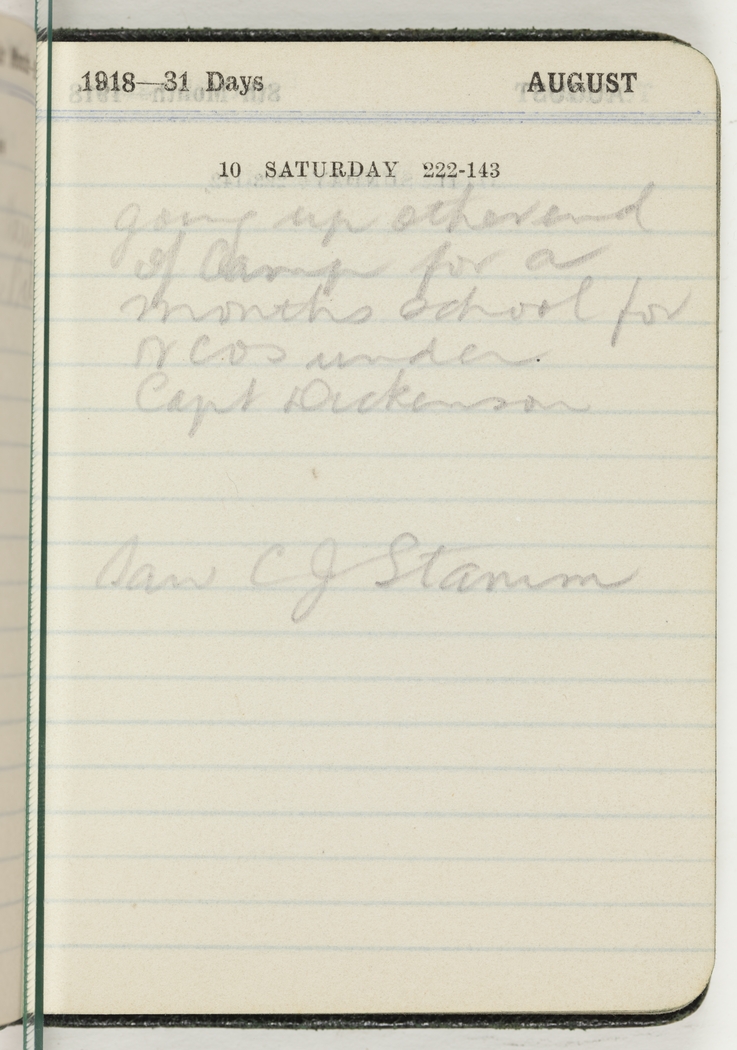 1918—31 Days AUGUST
10 SATURDAY 222-143
going up otherend
of Camp for a
months school for
NCOs under
Capt Dickenson
Saw C J Stamm